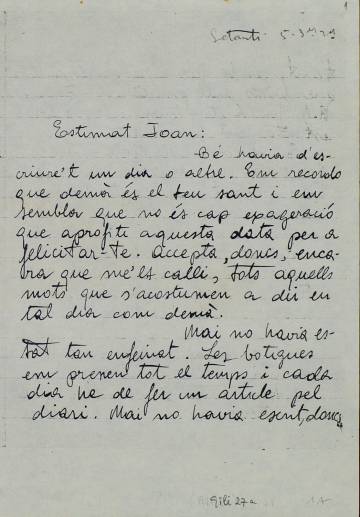 Estimat Joan:
Bé havia d'es-
criure't un dia o altre. Em recordo
que demà és el teu sant i em
sembla que no és cap exageració
que aprofiti aquesta data per a
felicitar-te. Accepta, doncs, enca-
ra que me'ls calli, tots aquells
mots que s'acostumen a dir en
tal dia com demà.
Mai no havia es-
tat tan enfeinat. Les botigues
em prenen tot el temps i cada
dia he de fer un article pel
diari. Mai no havia escrit, doncs,
Gili 27a